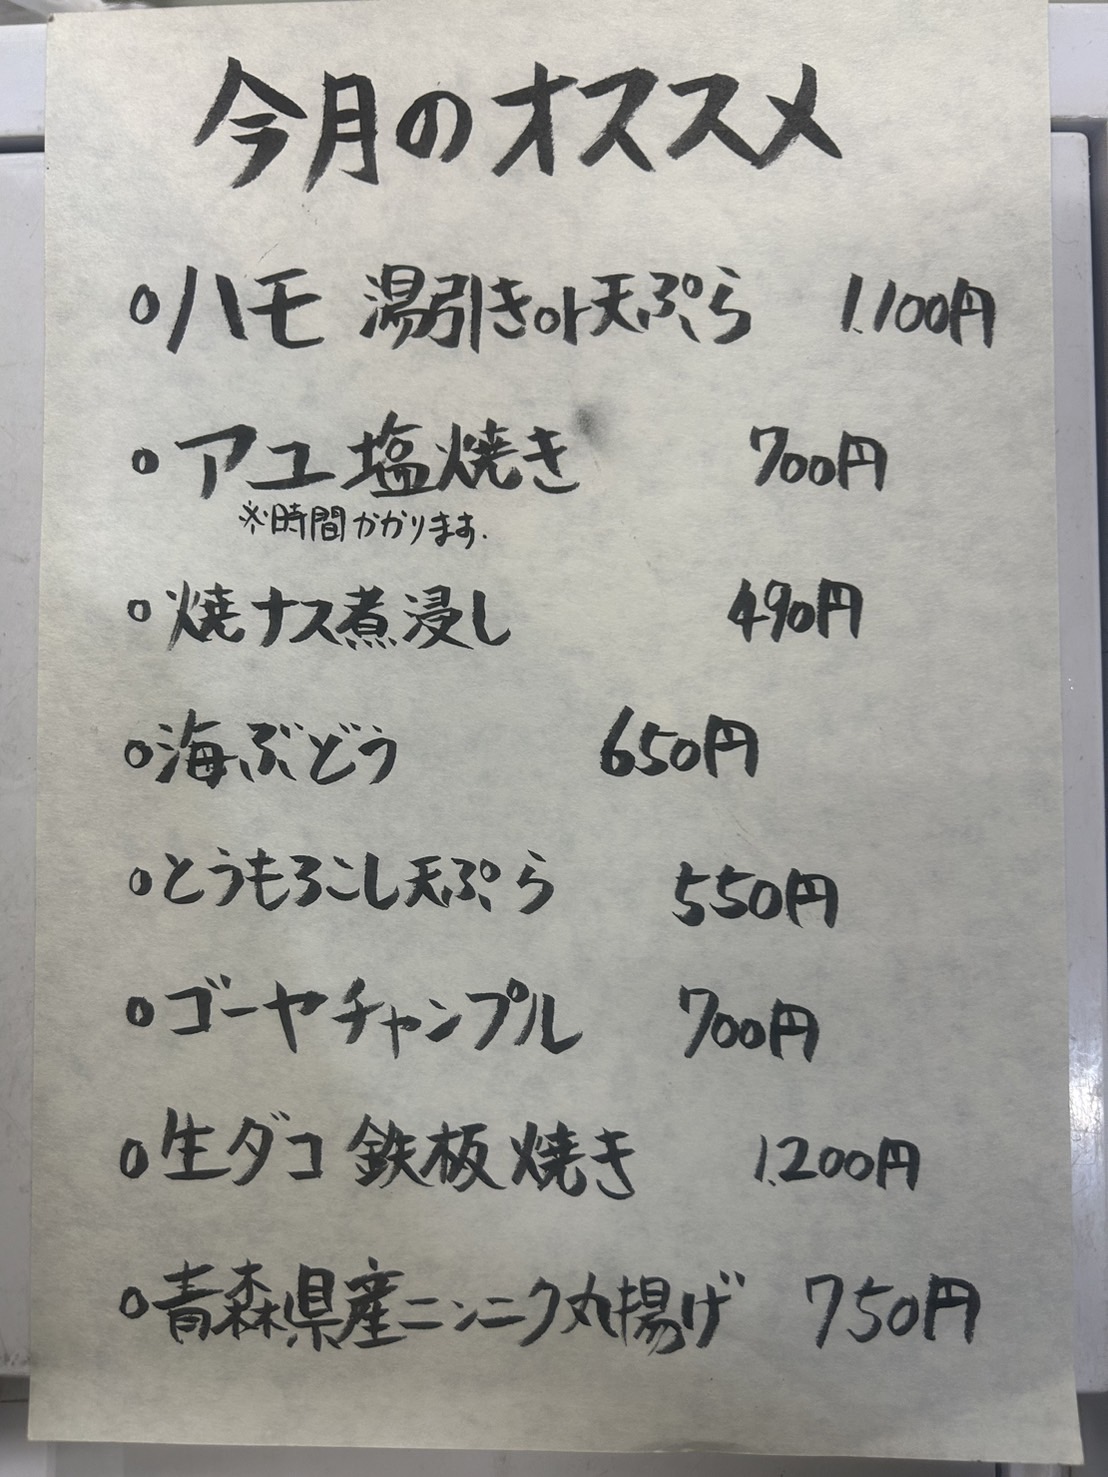 今月のオススメ
○ハモ 湯引きor天ぷら 1.100円
○アユ塩焼き 700円
※時間かかります.
○焼ナス煮浸し 490円
○海ぶどう 650円
○とうもろこし天ぷら 550円
○ゴーヤチャンプル 700円
○生ダコ 鉄板焼き 1.200円
○青森県産ニンニク丸揚げ 750円